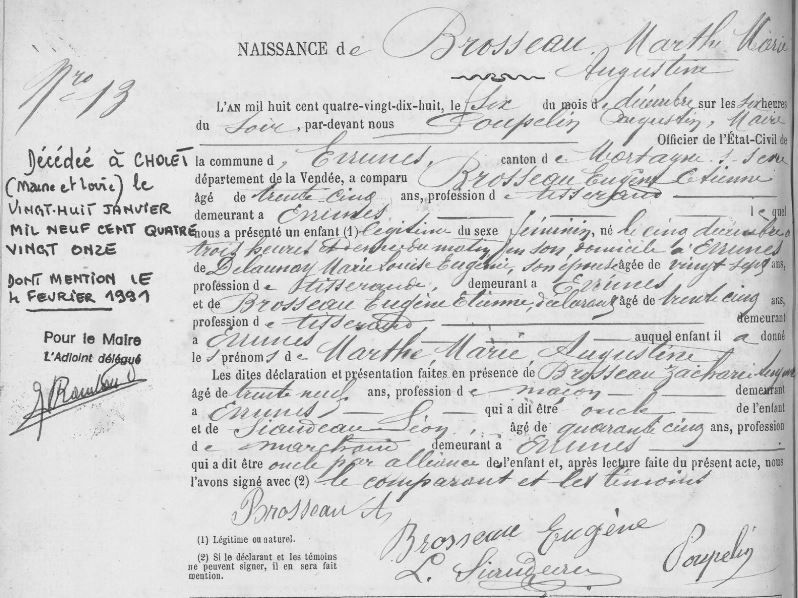 NAISSANCE de Brosseau Marthe Marie
Augustine
Nro 13
L'AN mil huit cent quatre-vingt-dix-huit, le Six du mois de décembre sur les six heures
du Soir, par-devant nous Poupelin Augustin, Maire
Officier de l'État-Civil de
la commune d' Errunes, canton de Mortagne s. Sèvre
département de la Vendée, a comparu Brosseau Eugène Etienne
âgé de trente cinq ans, profession de tisserand
demeurant a Errunes lequel
nous a présenté un enfant (1) légitime du sexe féminin, né le cinq décembre à
trois heures et demie du matin en son domicile à Errunes
de Delaunay Marie Louise Eugénie, son épouse âgée de vingt sept ans,
profession de tisserande, demeurant a Errunes
et de Brosseau Eugène Etienne, déclarant âgé de trente cinq ans,
profession de tisserand demeurant
a Errunes auquel enfant il a donné
le s prénom s de Marthe Marie Augustine
Les dites déclaration et présentation faites en présence de Brosseau Zacharie
âgé de trente neuf ans, profession de maçon demeurant
a Errunes qui a dit être oncle de l'enfant
et de Siaudeau Léon, âgé de quarante cinq ans, profession
de marchand demeurant à Errunes
qui a dit être oncle par alliance de l'enfant et, après lecture faite du présent acte, nous
l'avons signé avec (2) le comparant et les témoins
Brosseau A
Brosseau Eugène
L. Siaudeau
Poupelin
(1) Légitime ou naturel.
(2) Si le déclarant et les témoins
ne peuvent signer, il en sera fait
mention.
DÉCÉDÉE À CHOLET
(Maine et Loire) le
VINGT-HUIT JANVIER
MIL NEUF CENT QUATRE
VINGT ONZE
DONT MENTION LE
4 FEVRIER 1991
Pour le Maire
L'Adjoint délégué